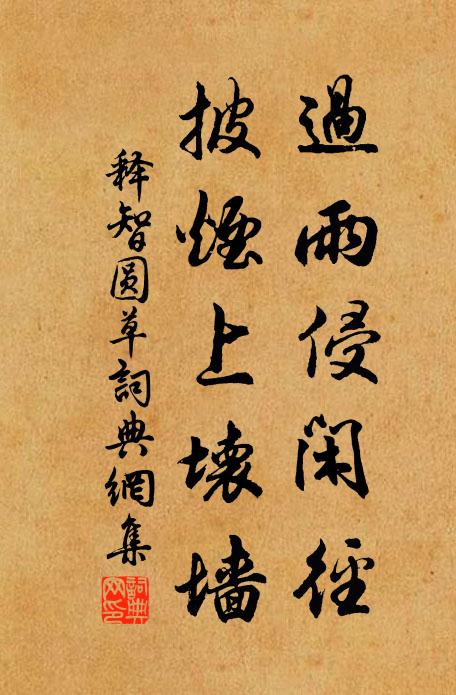 過雨侵閑徑
披煙上壞墻
釋智圓草詞典網集
詞典網印